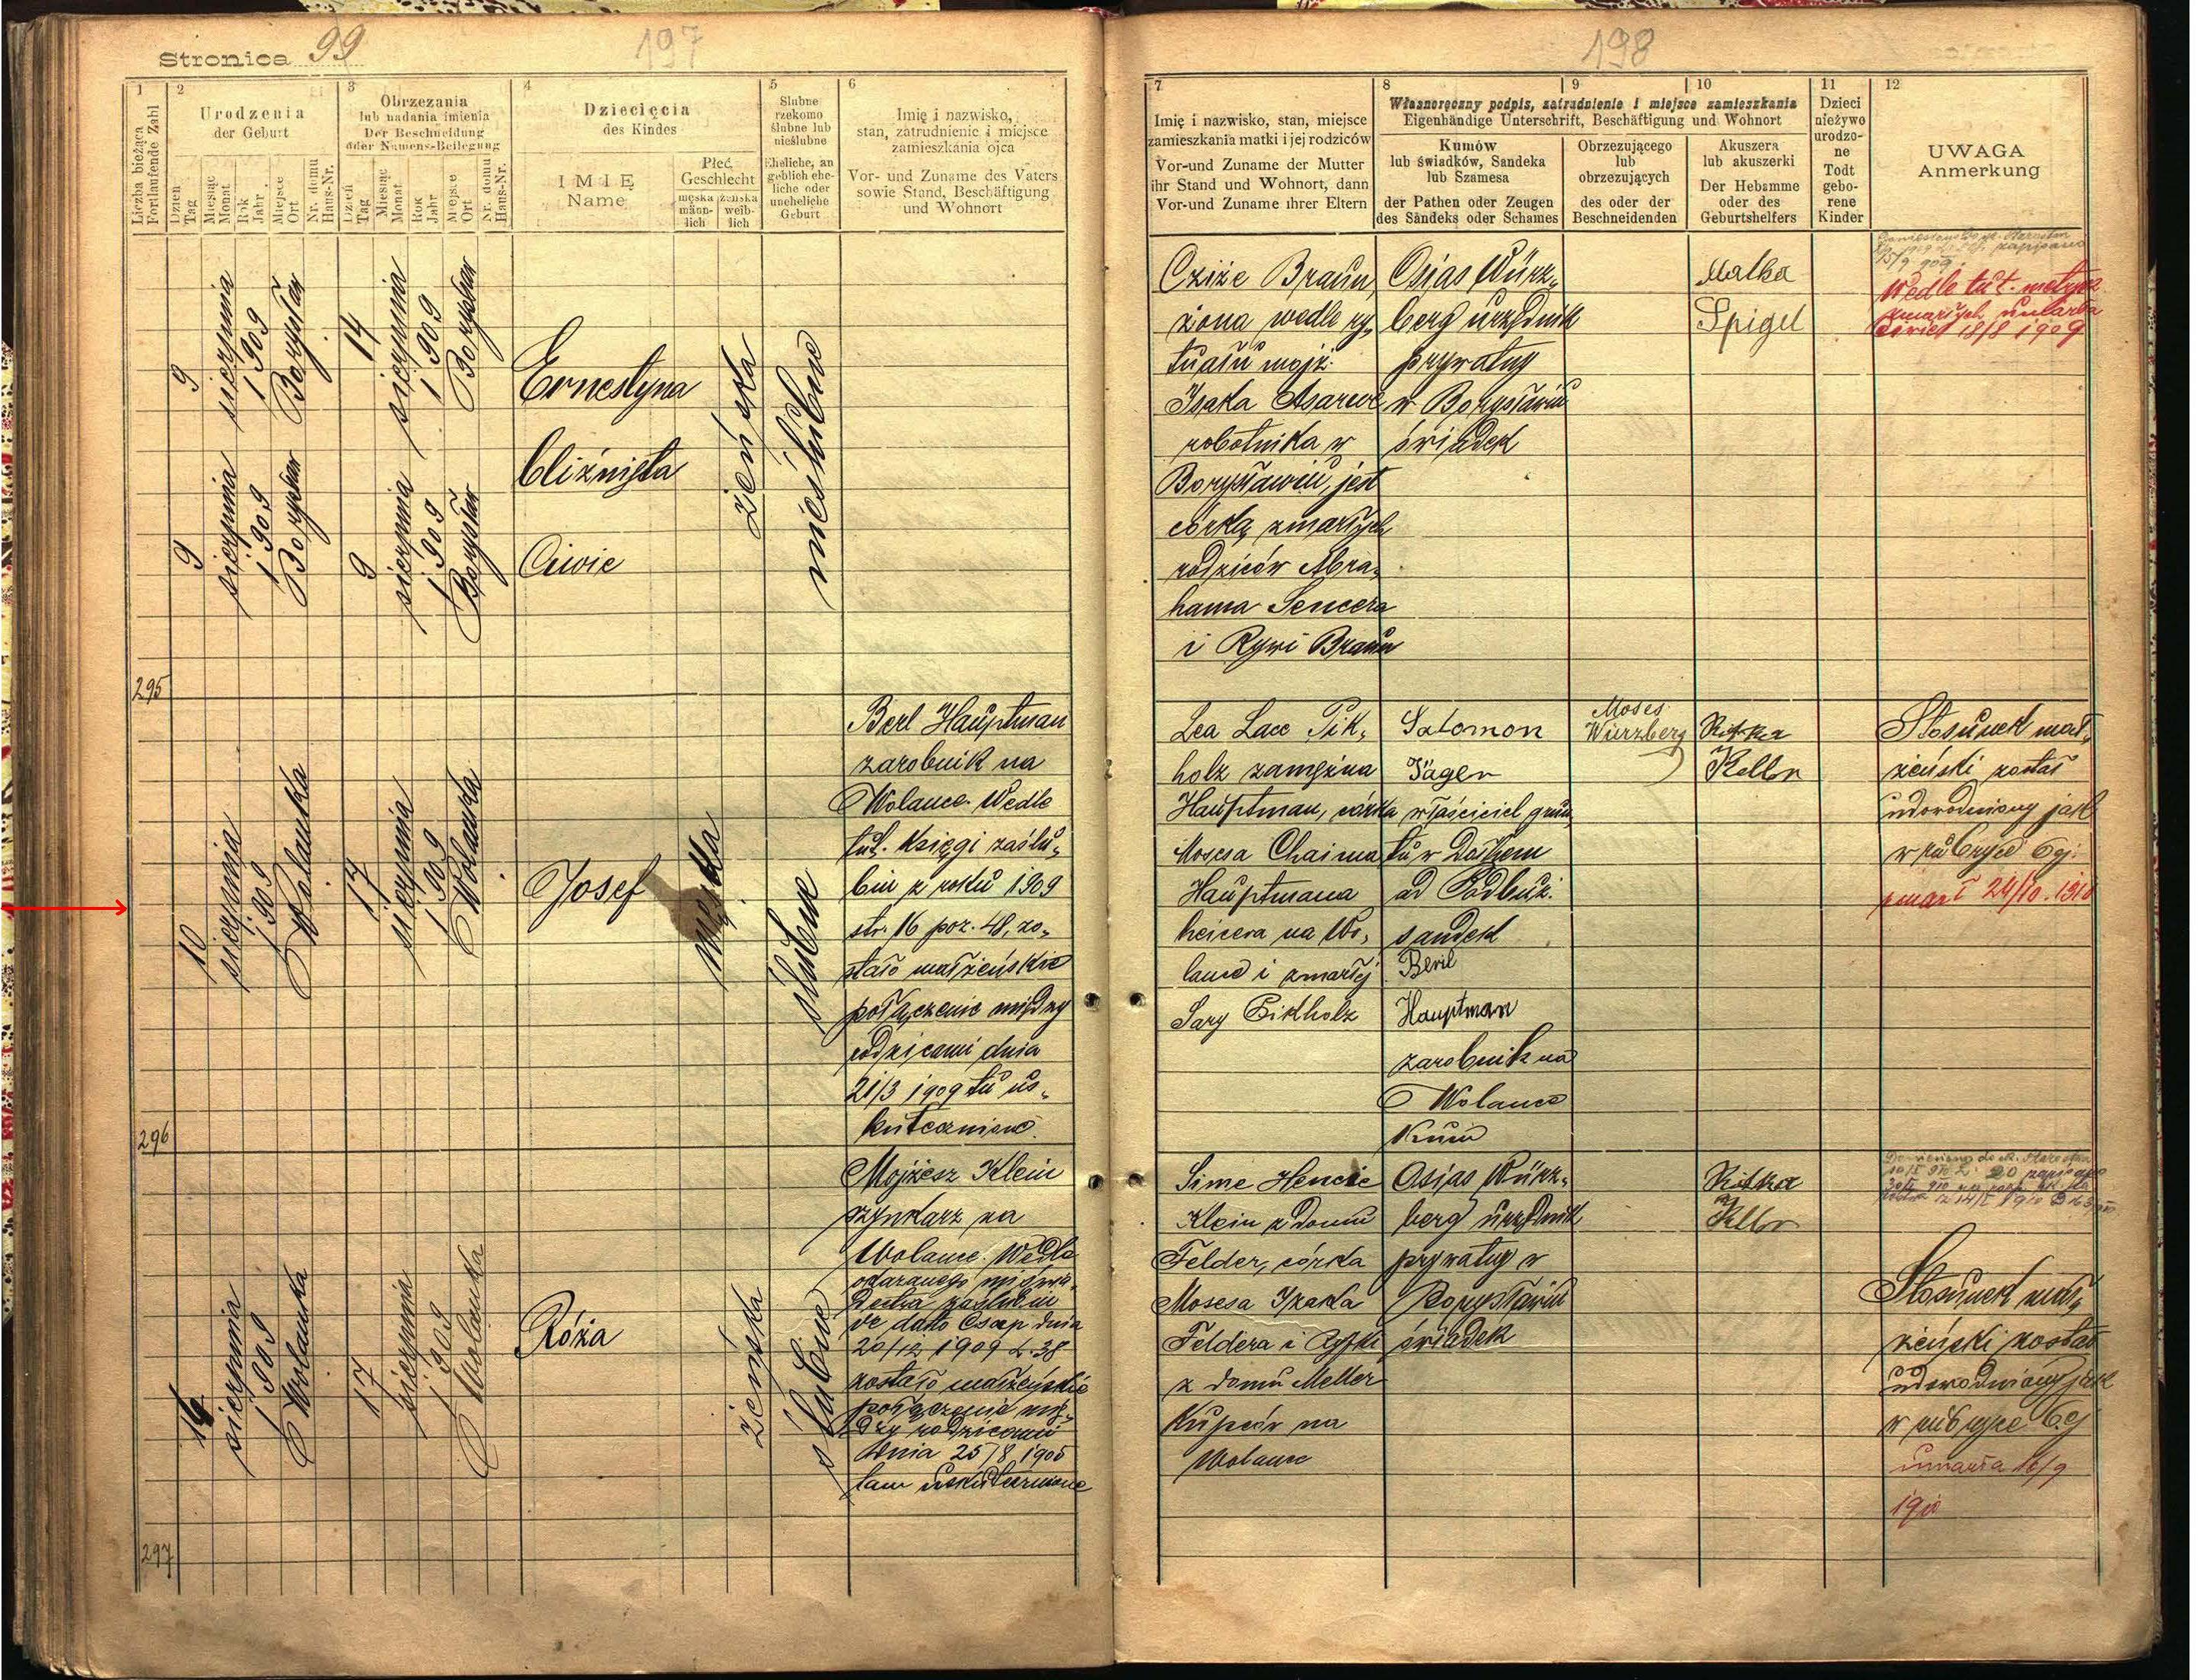 Stronica 99
197
198
1
Liczba bieżąca
Fortlaufende Zahl
2
Urodzenia
der Geburt
Dzień
Tag
Miesiąc
Monat
Rok
Jahr
Miejsce
Ort
Nr. domu
Haus-Nr.
3
Obrzezania
lub nadania imienia
Der Beschneidung
oder Namens-Beilegung
Dzień
Tag
Miesiąc
Monat
Rok
Jahr
Miejsce
Ort
Nr. domu
Haus-Nr.
4
Dziecięcia
des Kindes
IMIĘ
Name
Płeć
Geschlecht
męska
männ-
lich
żeńska
weib-
lich
5
Ślubne
rzekomo
ślubne lub
nieślubne
Eheliche, an
geblich ehe-
liche oder
uneheliche
Geburt
6
Imię i nazwisko,
stan, zatrudnienie i miejsce
zamieszkania ojca
Vor- und Zuname des Vaters
sowie Stand, Beschäftigung
und Wohnort
7
Imię i nazwisko, stan, miejsce
zamieszkania matki i jej rodziców
Vor-und Zuname der Mutter
ihr Stand und Wohnort, dann
Vor-und Zuname ihrer Eltern
8
9
10
Własnoręczny podpis, zatrudnienie i miejsce zamieszkania
Eigenhändige Unterschrift, Beschäftigung und Wohnort
Kumów
lub świadków, Sandeka
lub Szamesa
der Pathen oder Zeugen
des Sandeks oder Schames
Obrzezującego
lub
obrzezujących
des oder der
Beschneidenden
Akuszera
lub akuszerki
Der Hebamme
oder des
Geburtshelfers
11
Dzieci
nieżywo
urodzo-
ne
Todt
gebo-
rene
Kinder
12
UWAGA
Anmerkung
9
sierpnia
1909
Borysław
14
sierpnia
1909
Borysław
Ernestyna
bliźnięta
9
sierpnia
1909
Borysław
9
sierpnia
1909
Borysław
Ciwie
żeńska
nieślubne
Cziże Braun,
żona wedle ry„
tuału mojż.
Isaka
robotnika w
Borysławiu, jest
córką zmarłych
rodziców Abra„
hama Sencera
i Rywi Braun
Osias Würz„
berg urzędnik
prywatny
w Borysławiu
świadek
Malka
Spigel
Wedle tut. metryk
zmarłych umarła
Ciwie 18/8 1909
295
10
sierpnia
1909
Wolanka
17
sierpnia
1909
Wolanka
Josef
męska
ślubne
Berl Hauptman
zarobnik na
Wolance. Wedle
tut. Księgi zaślu„
bin z roku 1909
str. 16 poz. 48, zo„
stało małżeńskie
połączenie między
rodzicami dnia
21/3 1909 tu us„
kutecznione.
Lea Lace Pik„
holz zamężna
Hauptman, córka
Mosesa Chaima
Hauptmana
heicera na Wo„
lance i zmarłej
Sary Pikholz
Salomon
Jäger
właściciel grun„
tu w
ad Podbuż.
sandek
Beril
Hauptman
zarobnik na
Wolance
Kum
Moses
Würzberg
Ritka
Keller
Stosunek mał„
żeński został
udowodniony jak
w rubryce 6ej.
zmarł 24/10. 1910
296
16
sierpnia
1909
Wolanka
17
sierpnia
1909
Wolanka
Róża
żeńska
ślubne
Mojżesz Klein
szynkarz na
Wolance. Wedle
okazanego mi świa„
dectwa zaślubin
de dato Csap dnia
20/12 1909 L. 38
zostało małżeńskie
połączenie mię„
dzy rodzicami
dnia 25/8 1905
tam uskutecznione
Sime Hencie
Klein z domu
Felder, córka
Mosesa Izaka
Feldera i Ryfki
z domu Meller
Kupców na
Wolance
Osias Würz„
berg urzędnik
prywatny w
Borysławiu
świadek
Ritka
Keller
Stosunek mał„
żeński został
udowodniony jak
w rubryce 6ej
umarła 16/9
1910
297